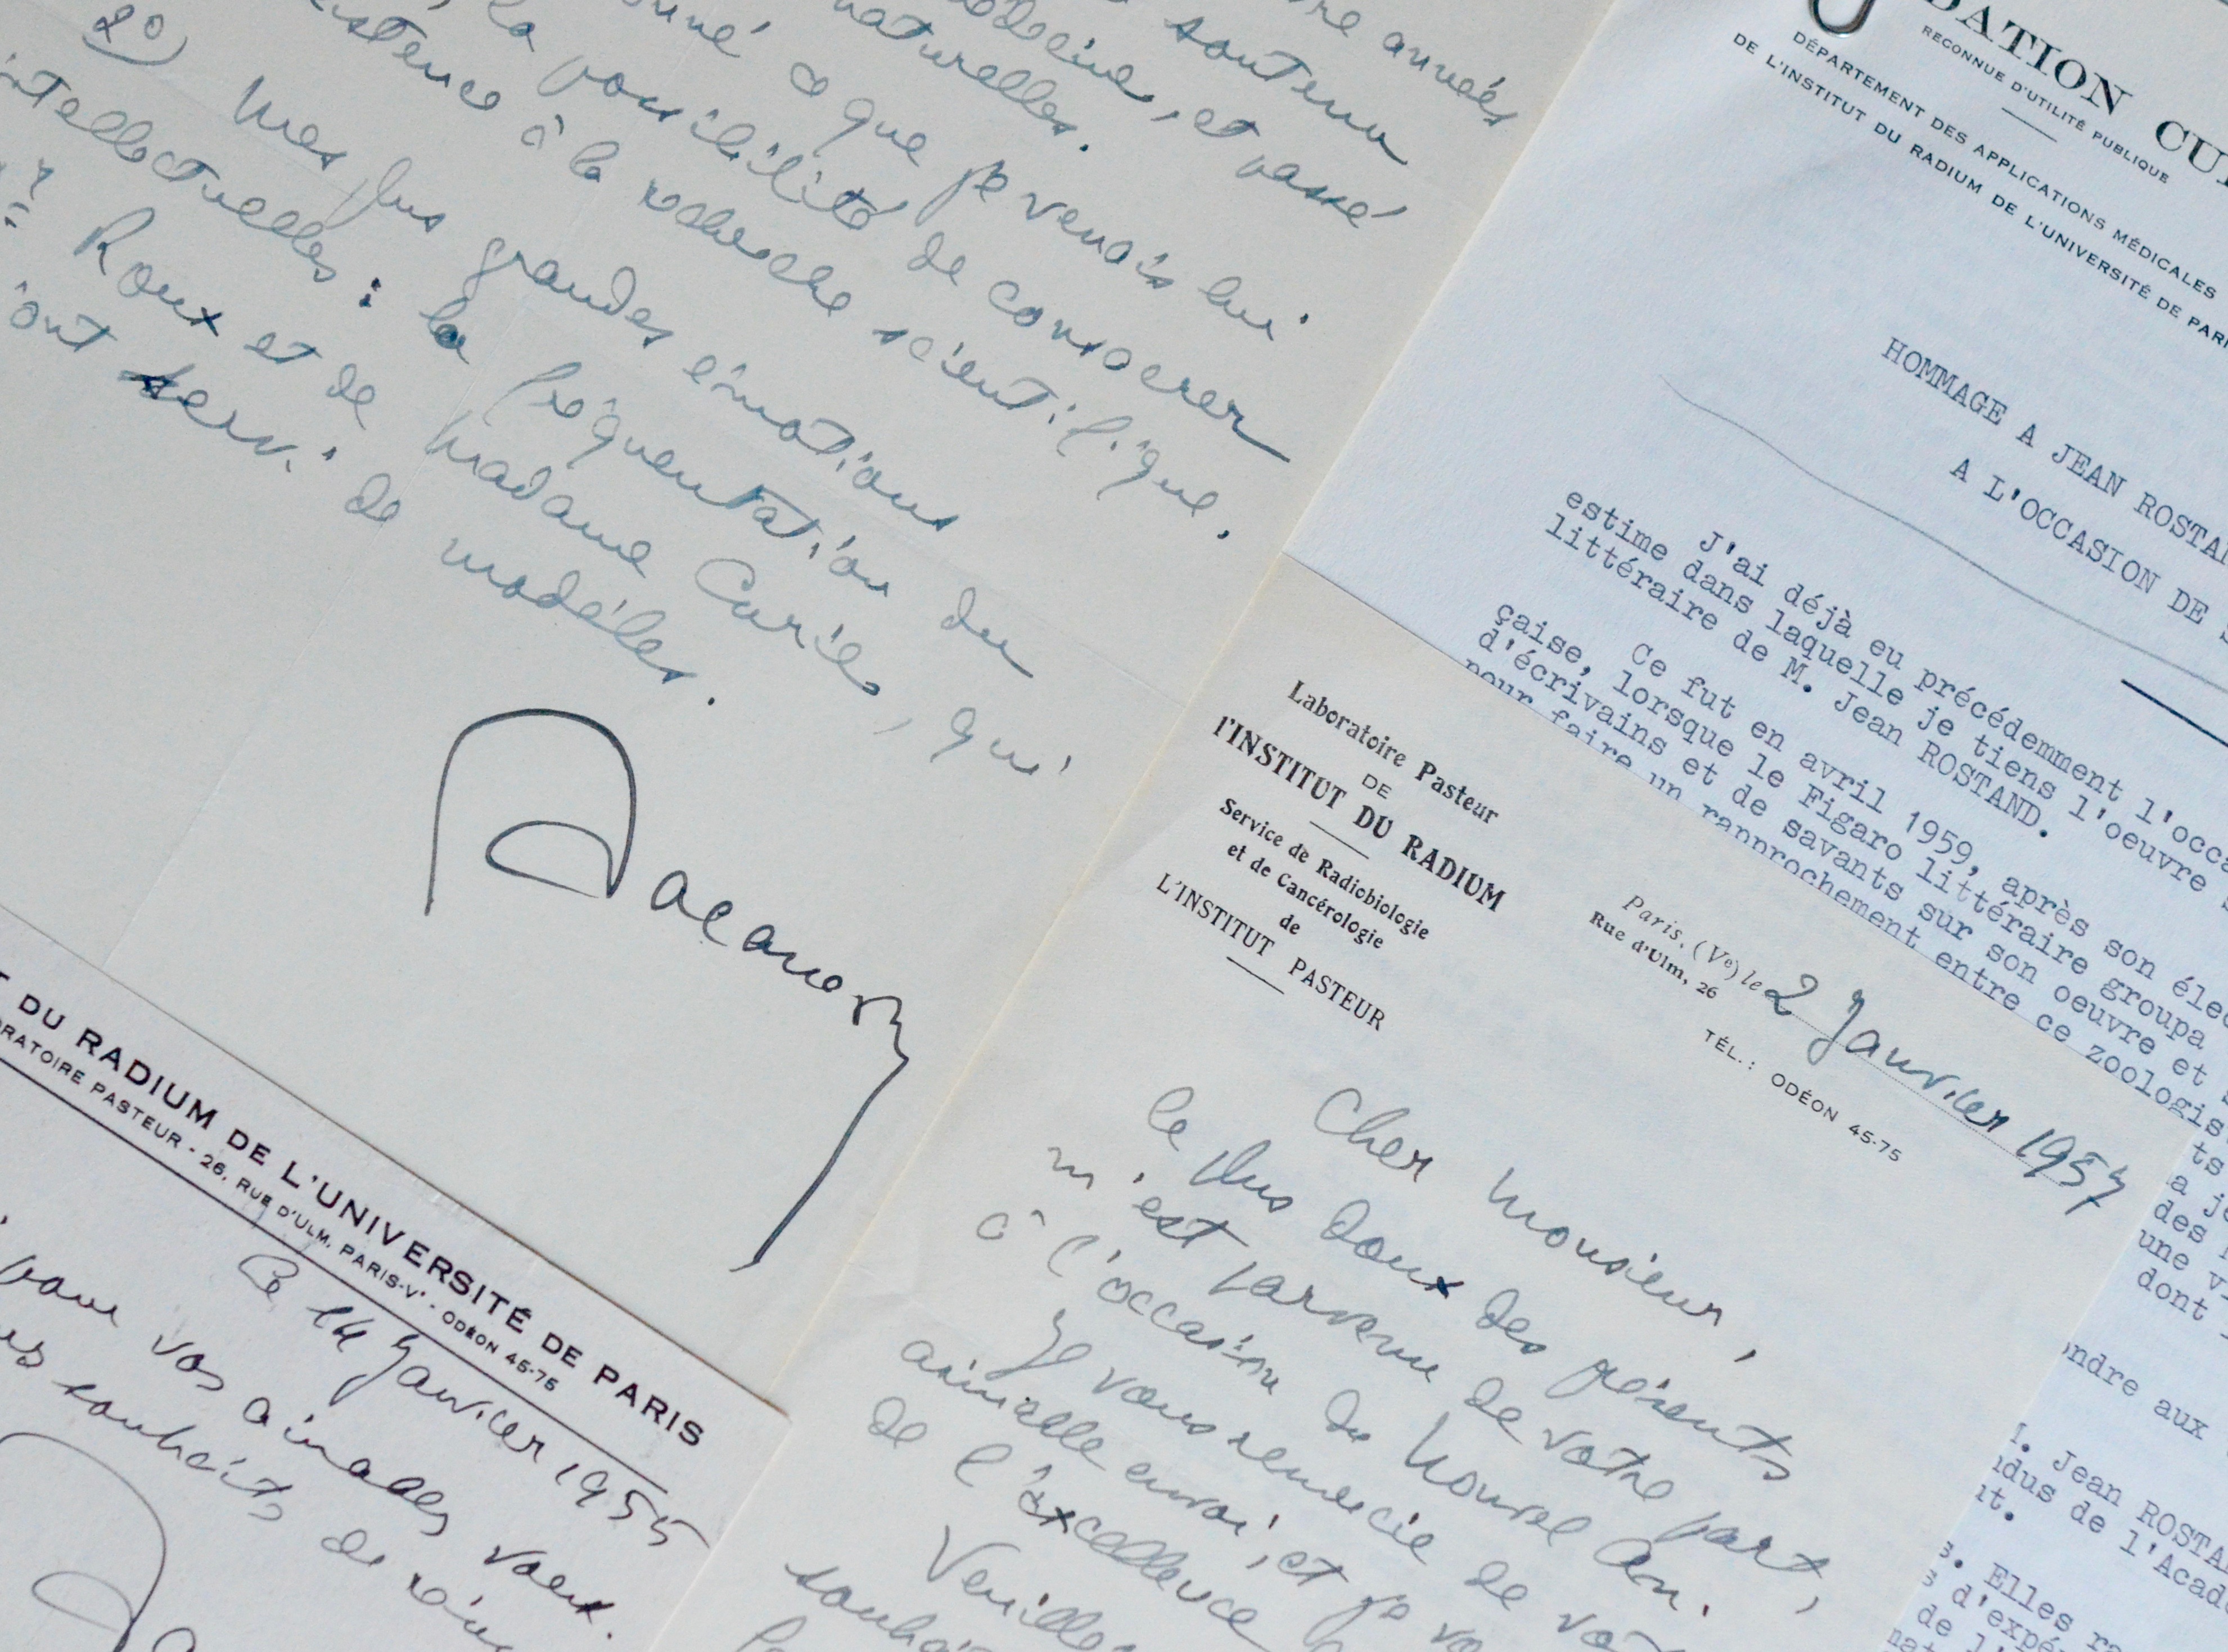 re années
soutenu
médecine, et passé
naturelles.
donné ce que je venais lui
la possibilité de consacrer
istence à la recherche scientifique.
2°) Mes plus grandes émotions
intellectuelles : la fréquentation du
Roux et de Madame Curie, qui
'ont servi de modèles.
Lacassagne
DATION CU
RECONNUE D'UTILITÉ PUBLIQUE
DÉPARTEMENT DES APPLICATIONS MÉDICALES
DE L'INSTITUT DU RADIUM DE L'UNIVERSITÉ DE PARI
HOMMAGE A JEAN ROSTAN
A L'OCCASION DE S
J'ai déjà eu précédemment l'occa
estime dans laquelle je tiens l'oeuvre s
littéraire de M. Jean ROSTAND.
Ce fut en avril 1959, après son élec
çaise, lorsque le Figaro littéraire groupa
d'écrivains et de savants sur son oeuvre et s
pour faire un rapprochement entre ce zoologis
ts
a je
des
une v
dont
ondre aux
M. Jean ROSTA
ndus de l'Acad
it.
s. Elles
s d'expé
de l'
Laboratoire Pasteur
DE
l'INSTITUT DU RADIUM
Service de Radiobiologie
et de Cancérologie
de
L'INSTITUT PASTEUR
Paris, (Ve) le 2 Janvier 1957
Rue d'Ulm, 26
TÉL. : ODÉON 45-75
Cher Monsieur,
Le plus doux des présents
m'est parvenu de votre part,
à l'occasion du Nouvel An.
Je vous remercie de vot
aimable envoi, et je vo
de l'excellence
Veuillez
souhai
T DU RADIUM DE L'UNIVERSITÉ DE PARIS
ORATOIRE PASTEUR - 26, RUE D'ULM, PARIS-Ve - ODÉON 45-75
Ce 14 Janvier 1955
pour vos aimables voeux.
souhaits de